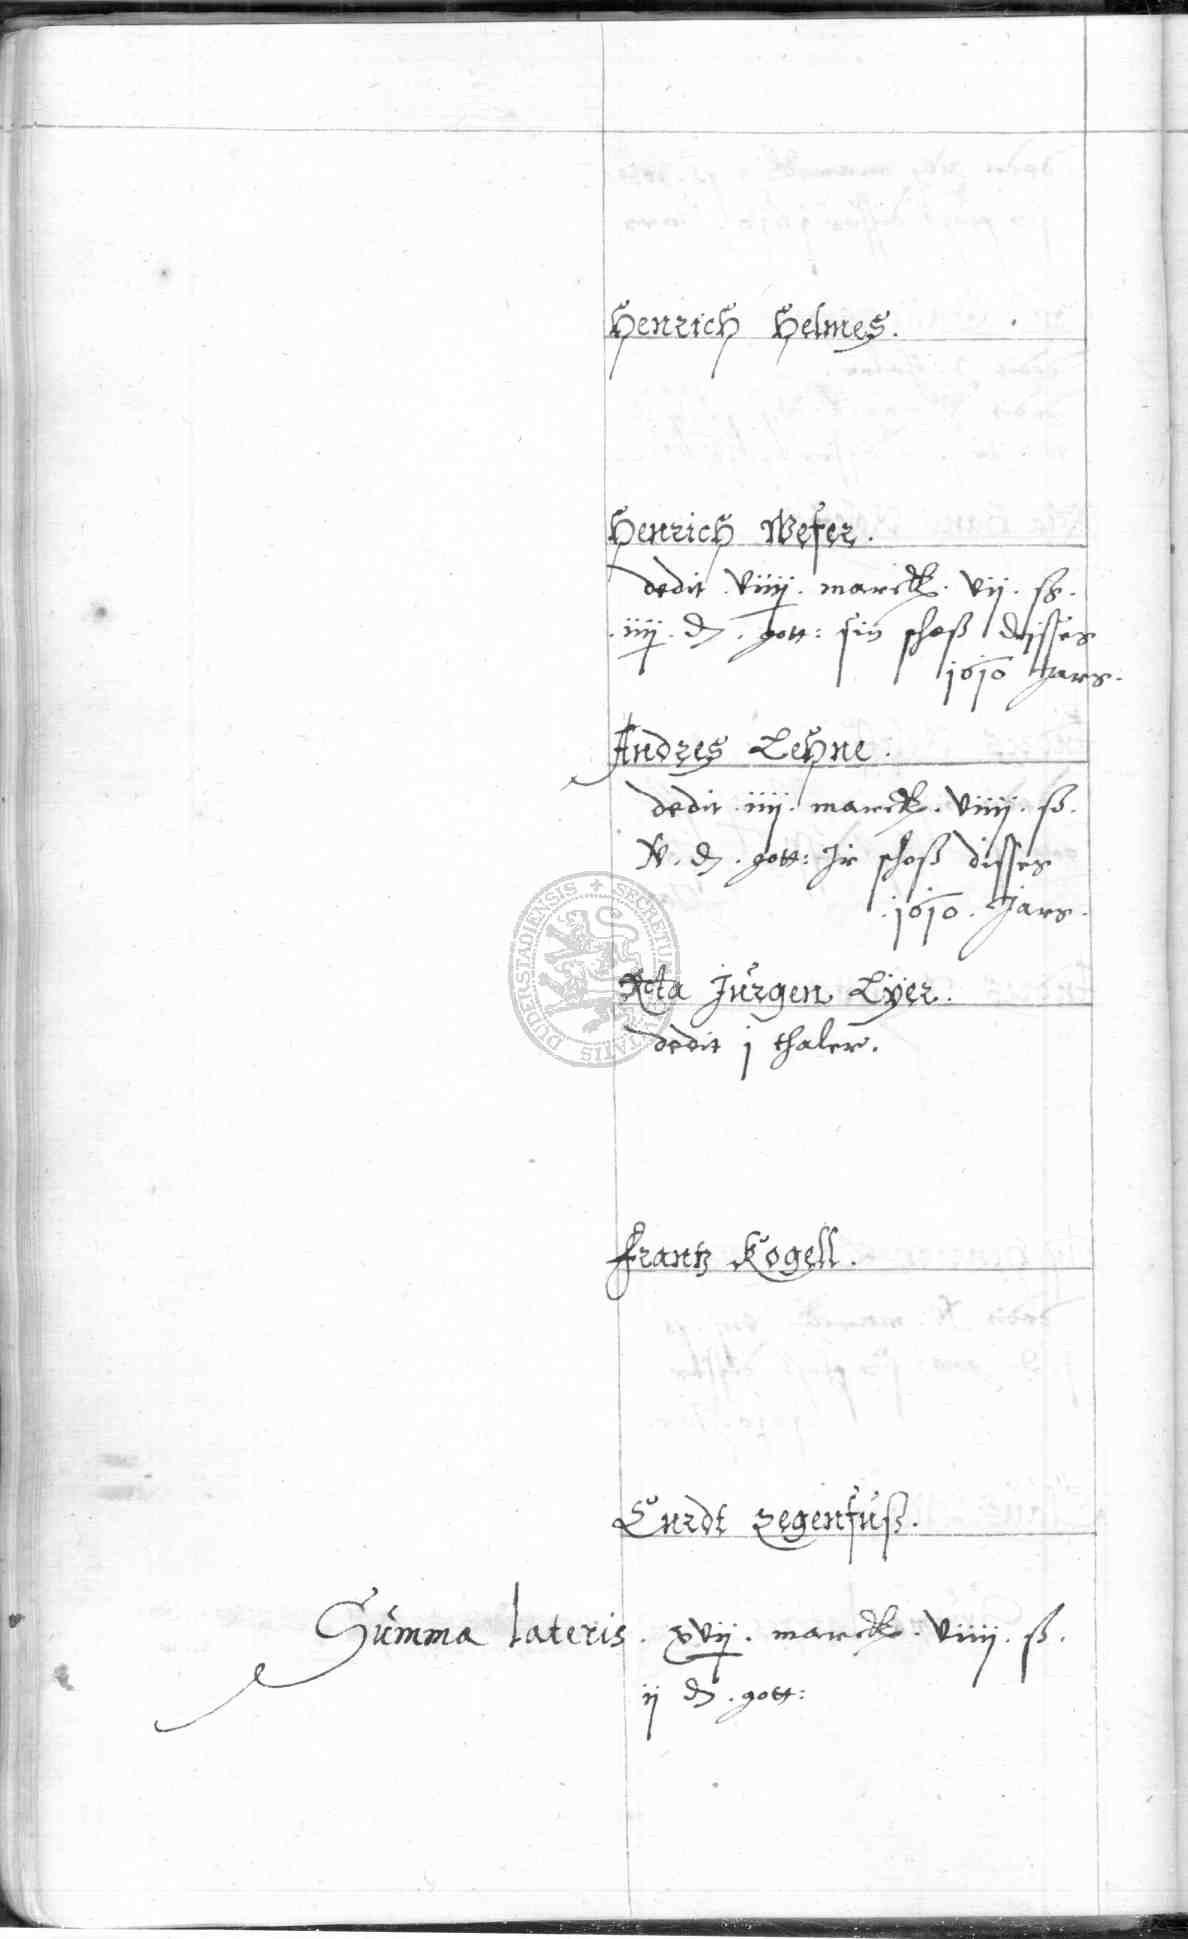 Henrich Helmes.
Henrich Wefer.
dedit . viiij . marck . vij . ß .
. iiij . d . gott: sin schoß disses
1610 Jars .
Andres Lehne .
dedit . iiij . marck . viiij . ß .
v . d . gott: Ir schoß disses
. 1610 . Jars .
Rcta Jürgen Lÿer .
dedit j thaler .
Frantz Kogell .
Curdt Zegenfuß .
Summa lateris . xvij . marck . viiij . ß .
ij d . gott:
DUDERSTADIENSIS + SECRETU CIVITATIS